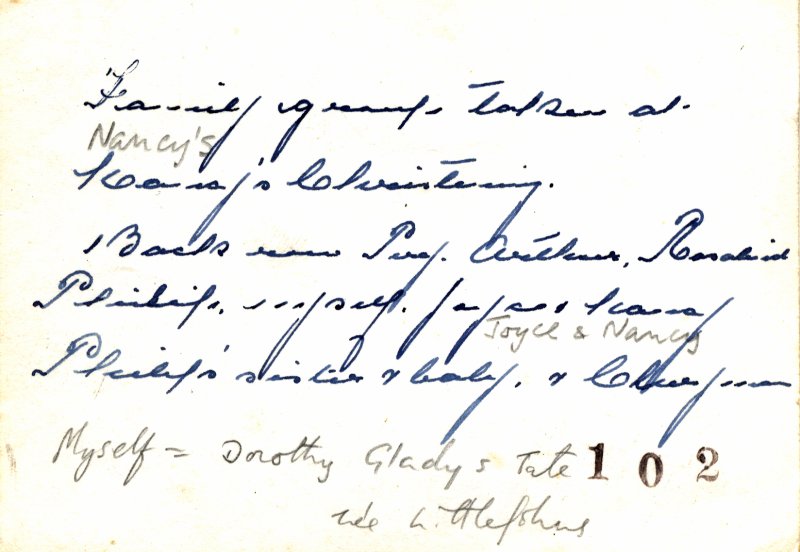 Family group taken at
Nancy's
Nancy's Christening.
Back row Peg. Arthur, Rosalind
Philip, myself. Joyce & Nancy
Joyce & Nancy
Philip's sister & baby, & Clergyman
Myself = Dorothy Gladys Tate 102
née Littlejohns